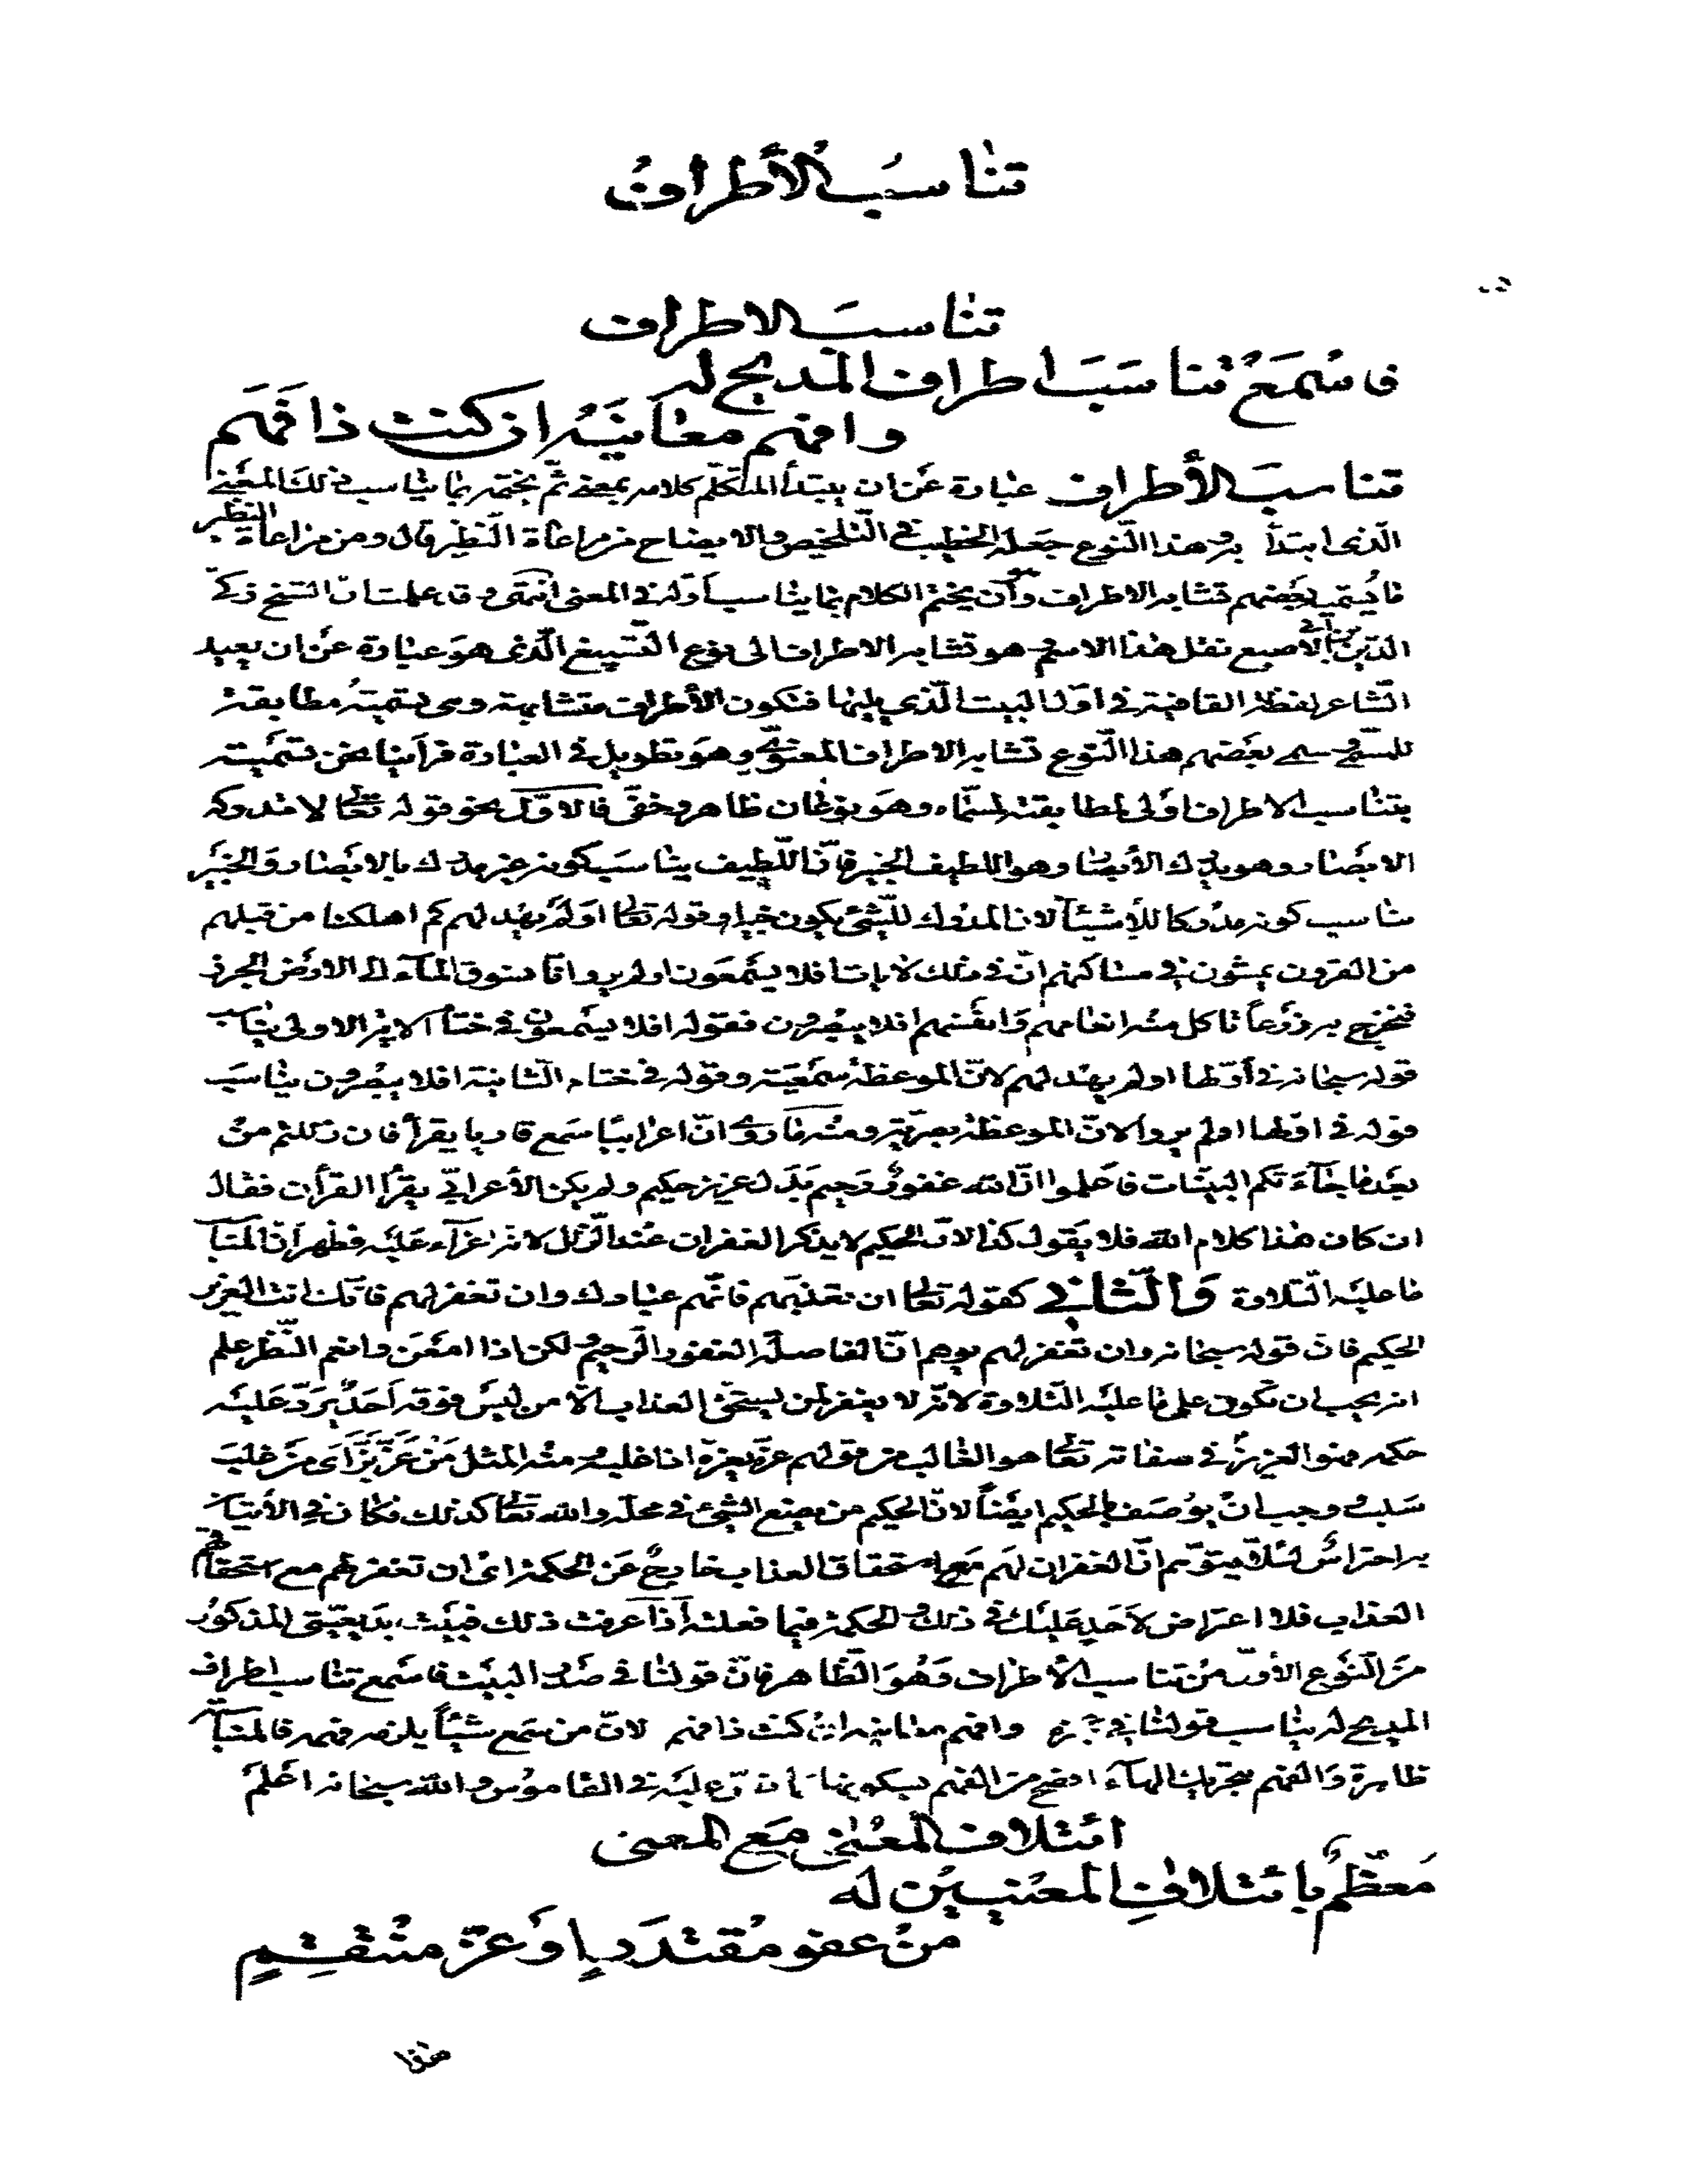 تناسب الأطراف
تناسب الاطراف
فاسمع تناسب اطراف المديح له
وافهم معانيه ان كنت ذا فهم
تناسب الأطراف عبارة عن ان يبتدأ المتكلم كلامه بمعنى ثم يختمه بما يناسب ذلك المعنى
الذى ابتدأ به وهذا النوع جعله الخطيب فى التلخيص والايضاح من مراعاة النظير قال ومن مراعاة النظير
ما يسميه بعضهم تشابه الاطراف وهو أن يختم الكلام بما يناسب أوله فى المعنى انتهى وقد علمت ان الشيخ زكى
الدين بن أبى الأصبع نقل هذا الاسم وهو تشابه الاطراف الى نوع التسبيغ الذى هو عبارة عن ان يعيد
الشاعر لفظة القافية فى اول البيت الذي يليها فتكون الأطراف متشابهة وهى تسمية مطابقة
للمسمى وسمى بعضهم هذا النوع تشابه الاطراف المعنوي وهو تطويل فى العبارة فرأينا نحن تسميته
بتناسب الاطراف اولى لمطابقته لمسماه وهو نوعان ظاهر وخفى فالاول نحو قوله تعالى لا تدركه
الابصار وهو يدرك الأبصار وهو اللطيف الخبير فانّ اللطيف يناسب كونه غير مدرك بالابصار والخبير
يناسب كونه مدركا للأشيآ لان المدرك للشئ يكون خبيرا وقوله تعالى اولم يهد لهم كم اهلكنا من قبلهم
من القرون يمشون فى مساكنهم انّ فى ذلك لآيات افلا يسمعون اولم يروا انّا نسوق المآء الى الارض الجرز
فنخرج به زرعاً تاكل منه انعامهم وانفسهم افلا يبصرون فقوله افلا يسمعون فى ختام الآية الاولى يناسب
قوله سبحانه فى أولها اولم يهد لهم لانّ الموعظة سمعية وقوله فى ختام الثانية افلا يبصرون يناسب
قوله فى اولها اولم يروا لانّ الموعظة بصرية ومنه ما روي انّ اعرابيا سمع قاريا يقرأ فان زللتم من
بعد ما جآءتكم البينات فاعلموا انّ الله غفور رحيم بدل عزيز حكيم ولم يكن الأعرابي يقرأ القرأن فقال
ان كان هذا كلام الله فلا يقول كذا لانّ الحكيم لا يذكر الغفران عند الزلل لانه اغرآء عليه فظهر انّ المناسب
ما عليه التلاوة والثاني كقوله تعالى ان تعذبهم فانّهم عبادك وان تغفر لهم فانّك انت العزيز
الحكيم فانّ قوله سبحانه وان تغفر لهم يوهم انّ الفاصلة الغفور الرحيم ولكن اذا امعن وانعم النظر علم
انه يجب ان تكون على ما عليه التلاوة لانّه لا يغفر لمن يستحق العذاب الّا من ليس فوقه احد يردّ عليه
حكمه فهو العزيز فى صفاته تعالى هو الغالب من قولهم عزّه يعزّه اذا غلبه ومنه المثل من عزّ بزّ اى من غلب
سلب ووجب ان يوصف بالحكيم ايضاً لانّ الحكيم من يضع الشئ فى محلّه والله تعالى كذلك فكان فى الأتيان
به احتراس لئلّا يتوهم انّ الغفران لهم مع استحقاق العذاب خارج عن الحكمة اى ان تغفر لهم مع استحقاقهم
العذاب فلا اعتراض لاحد عليك فى ذلك والحكمة فيما فعلته اذا عرفت ذلك فبيت بديعيتى المذكور
من النوع الأول من تناسب الأطراف وهو الظاهر فانّ قولنا فى صدر البيت فاسمع تناسب اطراف
المديح له يناسب قولنا فى عجزه وافهم معانيه ان كنت ذا فهم لانّ من سمع شيئاً يلزمه فهمه فالمناسبة
ظاهرة والفهم بتحريك الهآء افصح من الفهم بسكونها نصّ عليه فى القاموس والله سبحانه اعلم
ائتلاف المعنى مع المعنى
معظم بائتلاف المعنيين له
من عفو مقتدر او عز منتقم